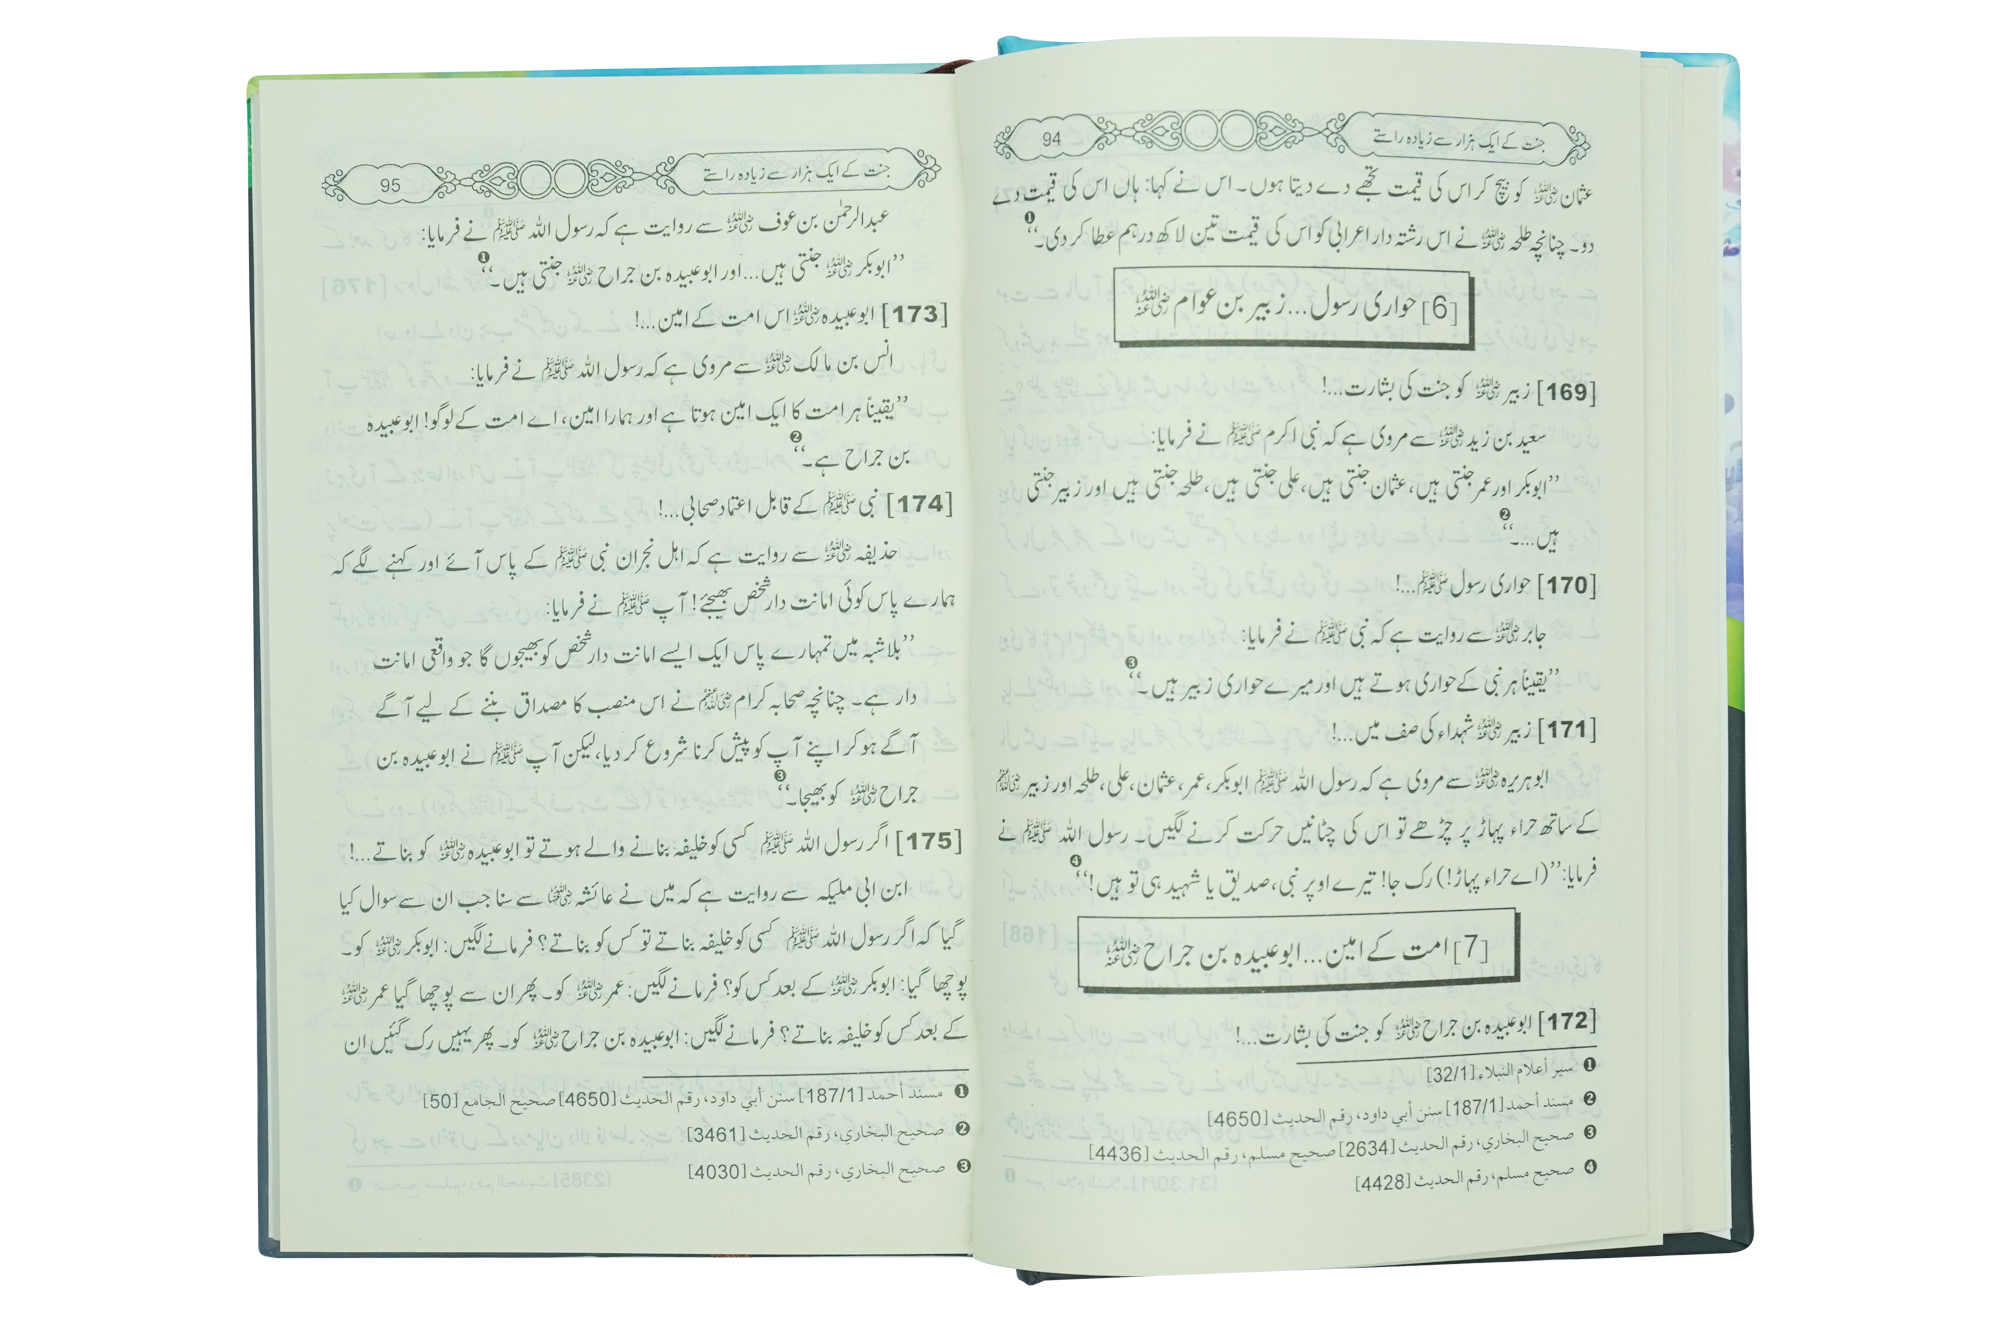 جنت کے ایک ہزار سے زیادہ راستے
94
عثمان رضی اللہ عنہ کو بیچ کر اس کی قیمت تجھے دے دیتا ہوں۔ اس نے کہا: ہاں اس کی قیمت دے
دو۔ چنانچہ طلحہ رضی اللہ عنہ نے اس رشتہ دار اعرابی کو اس کی قیمت تین لاکھ درہم عطا کر دی۔‘‘ ❶
[6] حواری رسول... زبیر بن عوام رضی اللہ عنہ
[169] زبیر رضی اللہ عنہ کو جنت کی بشارت...!
سعید بن زید رضی اللہ عنہ سے مروی ہے کہ نبی اکرم ﷺ نے فرمایا:
’’ابوبکر اور عمر جنتی ہیں، عثمان جنتی ہیں، علی جنتی ہیں، طلحہ جنتی ہیں اور زبیر جنتی
ہیں...۔‘‘ ❷
[170] حواری رسول ﷺ...!
جابر رضی اللہ عنہ سے روایت ہے کہ نبی ﷺ نے فرمایا:
’’یقیناً ہر نبی کے حواری ہوتے ہیں اور میرے حواری زبیر ہیں۔‘‘ ❸
[171] زبیر رضی اللہ عنہ شہداء کی صف میں...!
ابو ہریرہ رضی اللہ عنہ سے مروی ہے کہ رسول اللہ ﷺ ابوبکر، عمر، عثمان، علی، طلحہ اور زبیر رضی اللہ عنہم
کے ساتھ حراء پہاڑ پر چڑھے تو اس کی چٹانیں حرکت کرنے لگیں۔ رسول اللہ ﷺ نے
فرمایا: ’’(اے حراء پہاڑ!) رک جا! تیرے اوپر نبی، صدیق یا شہید ہی تو ہیں!‘‘ ❹
[7] امت کے امین... ابو عبیدہ بن جراح رضی اللہ عنہ
[172] ابوعبیدہ بن جراح رضی اللہ عنہ کو جنت کی بشارت...!
❶ سير أعلام النبلاء [32/1]
❷ مسند أحمد [187/1] سنن أبي داود، رقم الحديث [4650]
❸ صحيح البخاري، رقم الحديث [2634] صحيح مسلم، رقم الحديث [4436]
❹ صحيح مسلم، رقم الحديث [4428]
جنت کے ایک ہزار سے زیادہ راستے
95
عبدالرحمٰن بن عوف رضی اللہ عنہ سے روایت ہے کہ رسول اللہ ﷺ نے فرمایا:
’’ابوبکر رضی اللہ عنہ جنتی ہیں... اور ابوعبیدہ بن جراح رضی اللہ عنہ جنتی ہیں۔‘‘ ❶
[173] ابوعبیدہ رضی اللہ عنہ اس امت کے امین...!
انس بن مالک رضی اللہ عنہ سے مروی ہے کہ رسول اللہ ﷺ نے فرمایا:
’’یقیناً ہر امت کا ایک امین ہوتا ہے اور ہمارا امین، اے امت کے لوگو! ابوعبیدہ
بن جراح ہے۔‘‘ ❷
[174] نبی ﷺ کے قابل اعتماد صحابی...!
حذیفہ رضی اللہ عنہ سے روایت ہے کہ اہل نجران نبی ﷺ کے پاس آئے اور کہنے لگے کہ
ہمارے پاس کوئی امانت دار شخص بھیجئے! آپ ﷺ نے فرمایا:
’’بلاشبہ میں تمہارے پاس ایک ایسے امانت دار شخص کو بھیجوں گا جو واقعی امانت
دار ہے۔ چنانچہ صحابہ کرام رضی اللہ عنہم نے اس منصب کا مصداق بننے کے لیے آگے
آگے ہو کر اپنے آپ کو پیش کرنا شروع کر دیا، لیکن آپ ﷺ نے ابوعبیدہ بن
جراح رضی اللہ عنہ کو بھیجا۔‘‘ ❸
[175] اگر رسول اللہ ﷺ کسی کو خلیفہ بنانے والے ہوتے تو ابوعبیدہ رضی اللہ عنہ کو بناتے...!
ابن ابی ملیکہ سے روایت ہے کہ میں نے عائشہ رضی اللہ عنہا سے سنا جب ان سے سوال کیا
گیا کہ اگر رسول اللہ ﷺ کسی کو خلیفہ بناتے تو کس کو بناتے؟ فرمانے لگیں: ابوبکر رضی اللہ عنہ کو۔
پوچھا گیا: ابوبکر رضی اللہ عنہ کے بعد کس کو؟ فرمانے لگیں: عمر رضی اللہ عنہ کو۔ پھر ان سے پوچھا گیا عمر رضی اللہ عنہ
کے بعد کس کو خلیفہ بناتے؟ فرمانے لگیں: ابوعبیدہ بن جراح رضی اللہ عنہ کو۔ پھر یہیں رک گئیں ان
❶ مسند أحمد [187/1] سنن أبي داود، رقم الحديث [4650] صحيح الجامع [50]
❷ صحيح البخاري، رقم الحديث [3461]
❸ صحيح البخاري، رقم الحديث [4030]